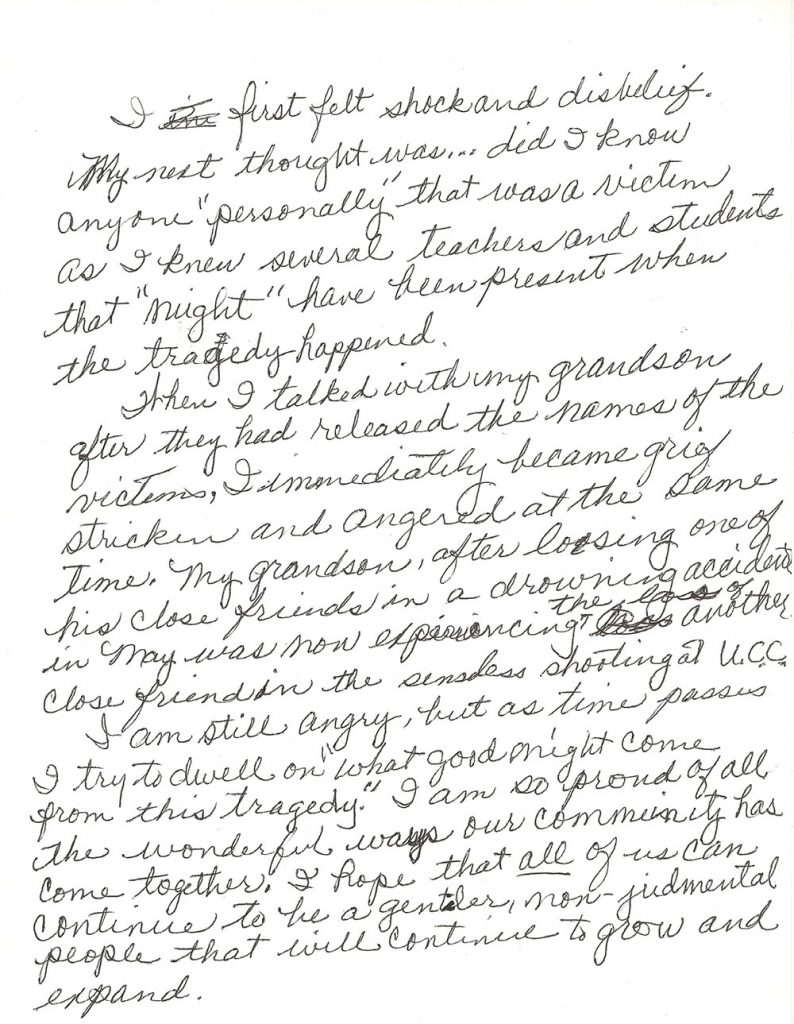 I first felt shock and disbelief.
My next thought was... did I know
anyone "personally" that was a victim
as I knew several teachers and students
that "might" have been present when
the tragedy happened.
When I talked with my grandson
after they had released the names of the
victims, I immediately became grief
stricken and angered at the same
time. My grandson, after loosing one of
his close friends in a drowning accident
in May was now experiencing the loss of another
close friend in the senseless shooting at U.C.C.
I am still angry, but as time passes
I try to dwell on "what good might come
from this tragedy." I am so proud of all
the wonderful ways our community has
come together. I hope that all of us can
continue to be a gentler, non-judmental
people that will continue to grow and
expand.